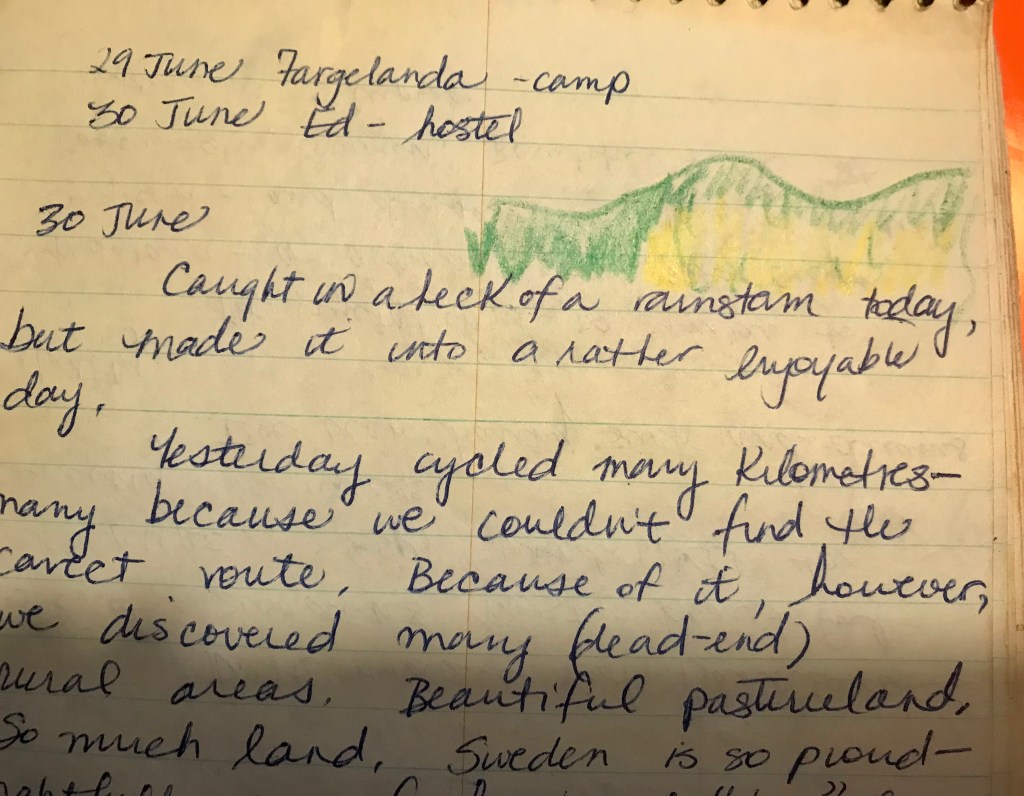 29 June Fargelanda - camp
30 June Ed - hostel
30 June
Caught in a heck of a rainstorm today,
but made it into a rather enjoyable
day.
Yesterday cycled many Kilometres—
many because we couldn't find the
correct route. Because of it, however,
we discovered many (dead-end)
rural areas. Beautiful pastureland.
So much land. Sweden is so proud—